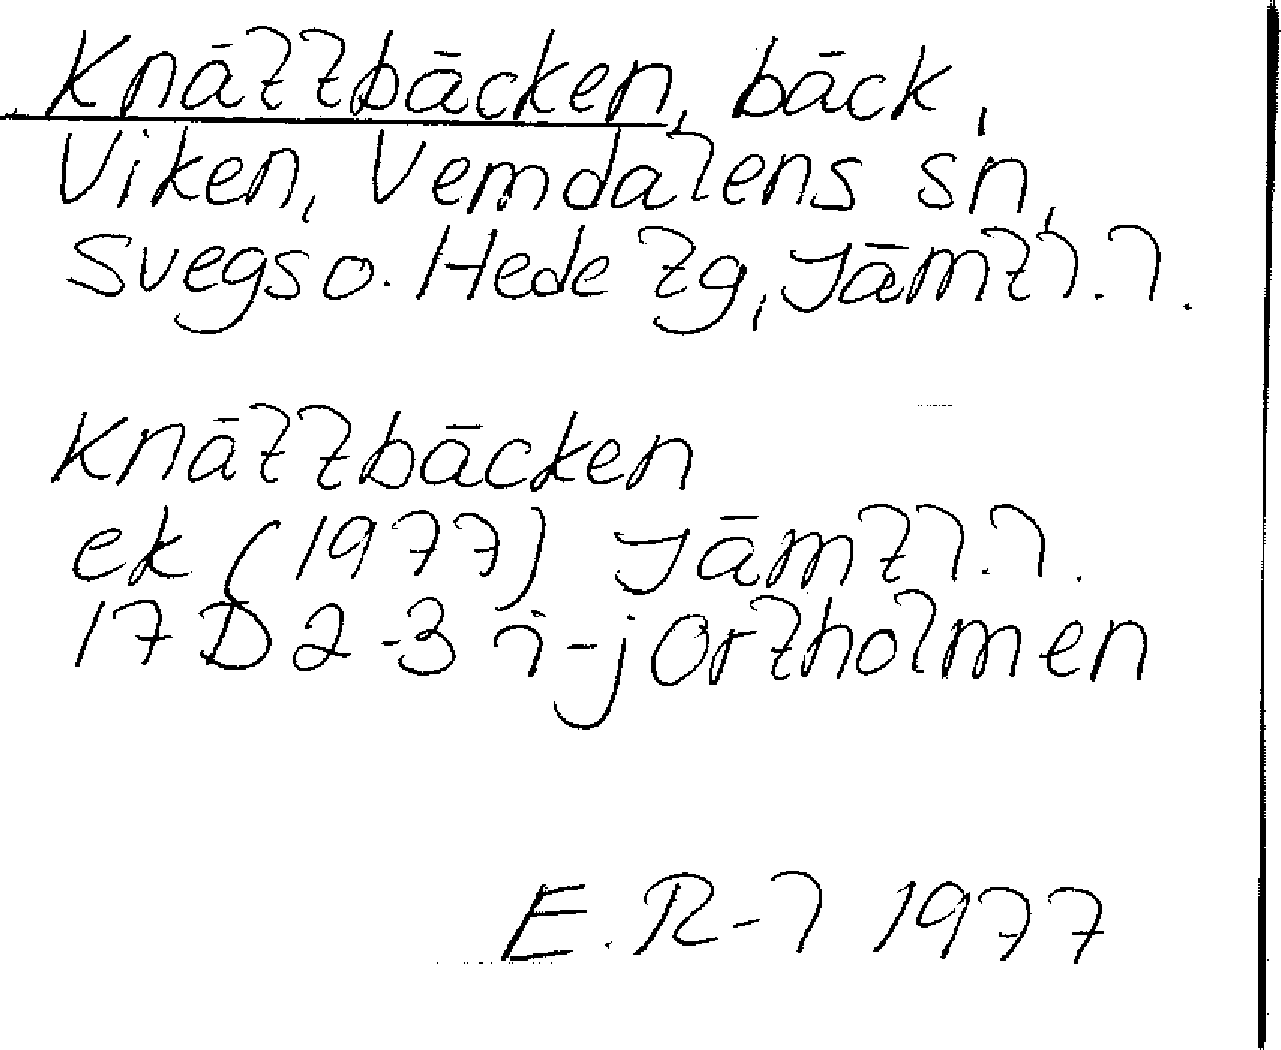 Knättbäcken, bäck,
Viken, Vemdalens sn,
Svegs o. Hede tg, Jämtl. l.
Knättbäcken
ek (1977) Jämtl. l.
17D 2-3 i-j Ortholmen
E. R-l 1977